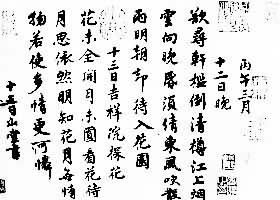 丙午三月
十二日晚
欲尋軒檻倒清樽江上烟
雲向晚昏須倩東風吹散
雨明朝卻待入花園
十三日吉祥院探花
花未全開月未圓看花待
月思依然明知花月無情
物若使多情更可憐
十三日山堂書